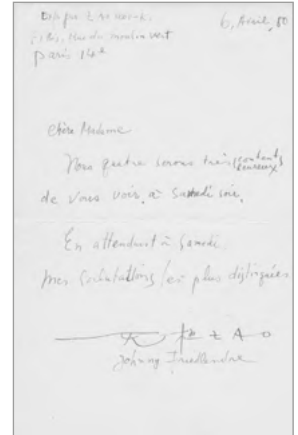 6, Avril, 80
rue du moulin vert
Paris 14e
Chère Madame
Nous quatre serons très (content heureux)
de vous voir, à Samedi soir.
En attendant à Samedi.
mes Salutations les plus distinguées
Johnny Friedlaender